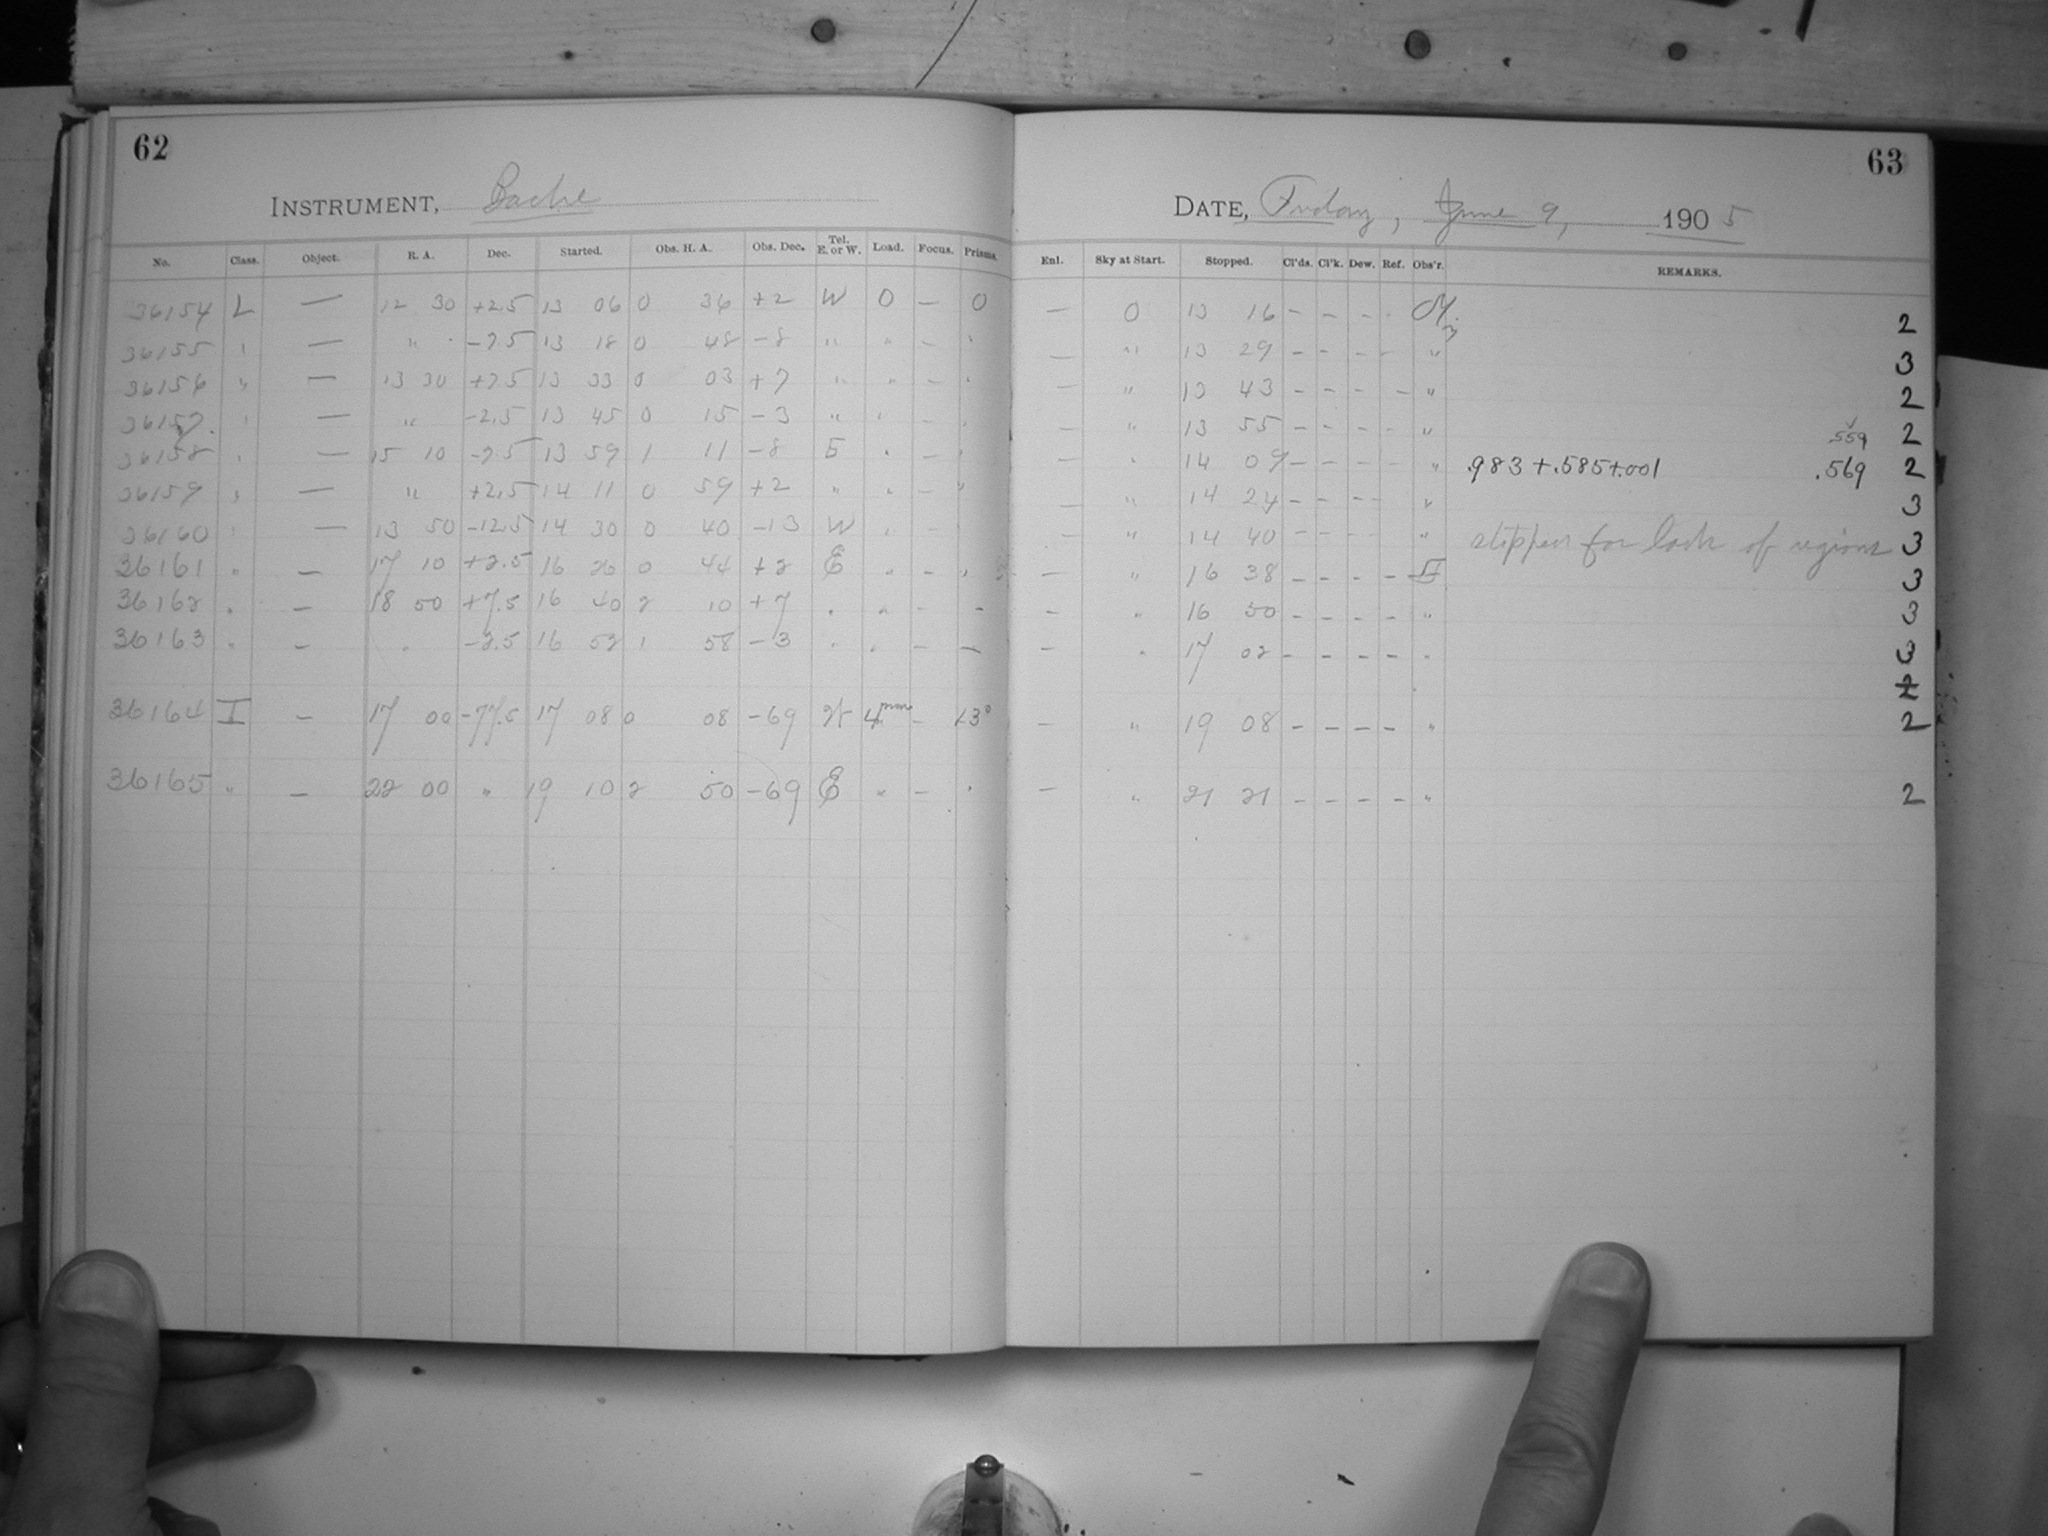 62
INSTRUMENT, Bache
No. Class. Object. R. A. Dec. Started. Obs. H. A. Obs. Dec. Tel. E. or W. Load. Focus. Prisms.
36154 L — 12 30 +2.5 13 06 0 36 +2 W 0 — 0
36155 " — " -7.5 13 18 0 48 -8 " " - "
36156 " — 13 30 +7.5 13 33 0 03 +7 " " - "
36157 " — " -2.5 13 45 0 15 -3 " " - "
36158 " — 15 10 -7.5 13 59 1 11 -8 E " - "
36159 " — " +2.5 14 11 0 59 +2 " " - "
36160 " — 13 50 -12.5 14 30 0 40 -13 W " -
36161 " — 17 10 +2.5 16 26 0 44 +2 E " - "
36162 " — 18 50 +7.5 16 40 2 10 +7 " " - -
36163 " — " -2.5 16 52 1 58 -3 " " - -
36164 I — 17 00 -77.5 17 08 0 08 -69 W 4mm - 13°
36165 " — 22 00 " 19 10 2 50 -69 E " - "
63
DATE, Friday, June 9, 1905
Enl. Sky at Start. Stopped. Cl'ds. Cl'k. Dew. Ref. Obs'r. REMARKS.
— 0 13 16 - - - - 2
— " 13 29 - - - - " 3
— " 13 43 - - - - " 2
— " 13 55 - - - - " .559 2
— " 14 09 - - - - " .983+.585+.001 .569 2
— " 14 24 - - - - " 3
— " 14 40 - - - - " stopped for lack of regions 3
— " 16 38 - - - - 3
— " 16 50 - - - - " 3
— " 17 02 - - - - " 3
2
— " 19 08 - - - - " 2
— " 21 21 - - - - " 2